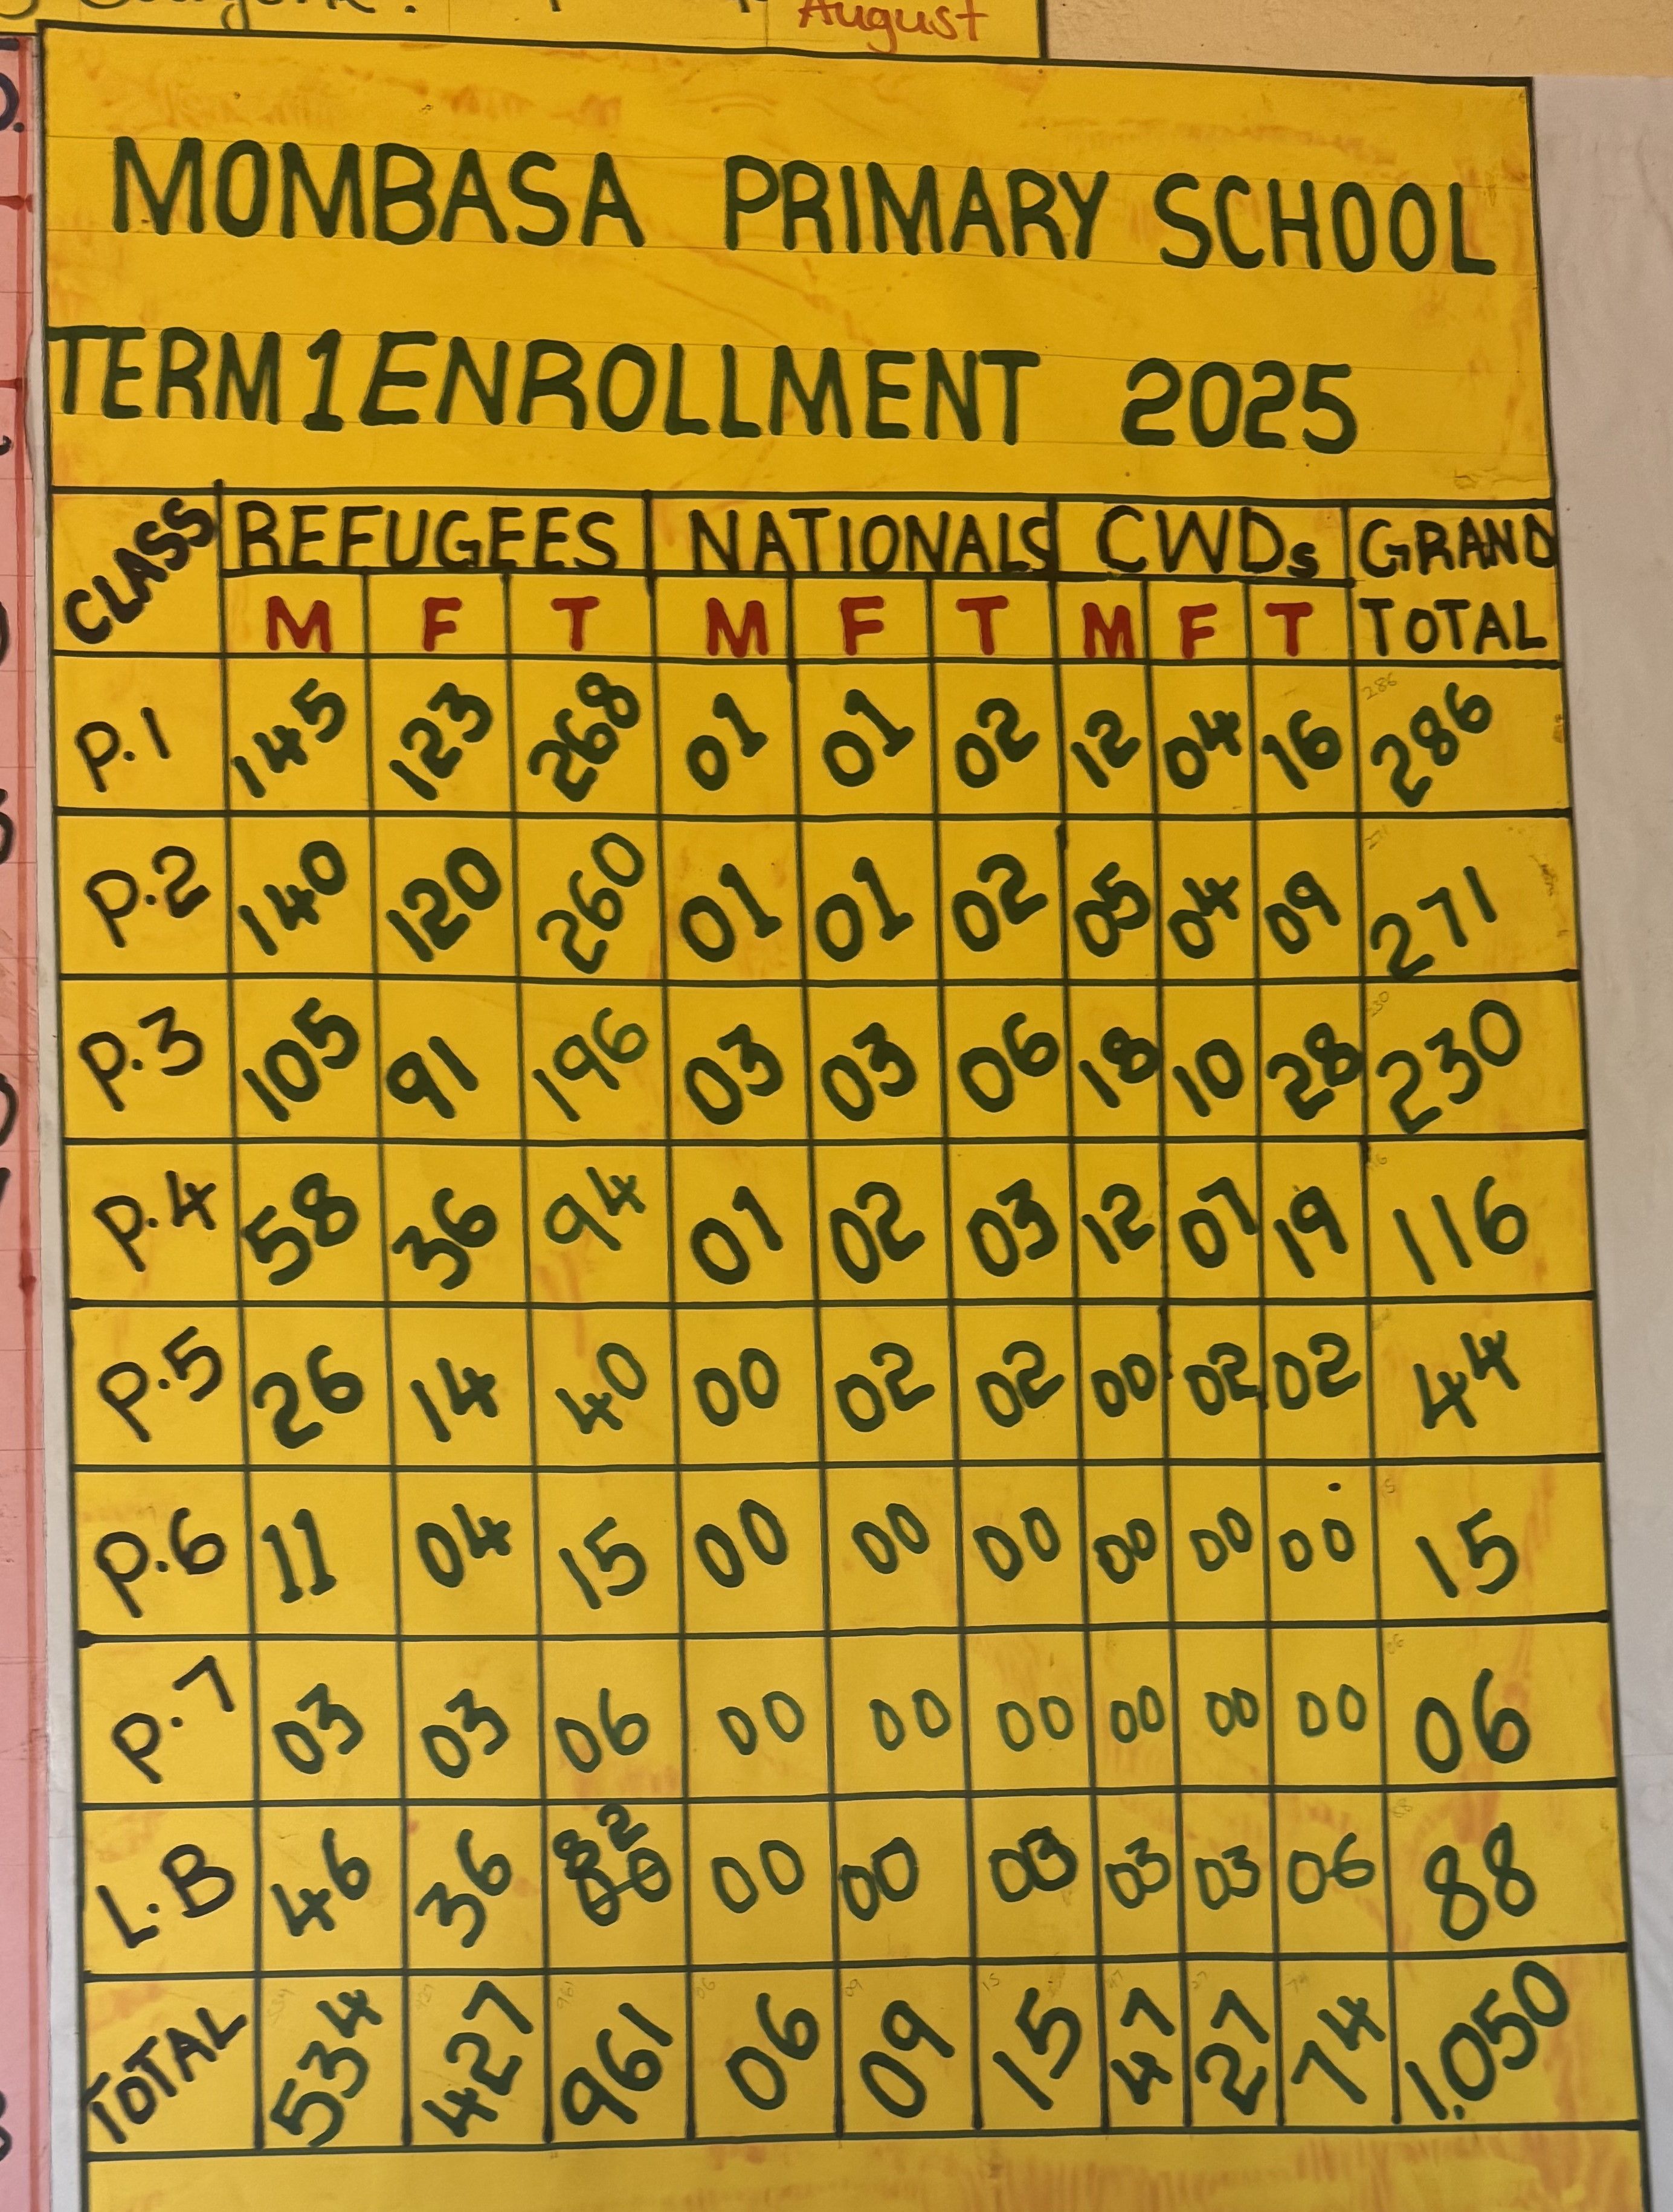 August
MOMBASA PRIMARY SCHOOL
TERM 1 ENROLLMENT 2025
CLASS REFUGEES NATIONALS CWDs GRAND TOTAL
M F T M F T M F T
P.1 145 123 268 01 01 02 12 04 16 286
P.2 140 120 260 01 01 02 05 04 09 271
P.3 105 91 196 03 03 06 18 10 28 230
P.4 58 36 94 01 02 03 12 07 19 116
P.5 26 14 40 00 02 02 00 02 02 44
P.6 11 04 15 00 00 00 00 00 00 15
P.7 03 03 06 00 00 00 00 00 00 06
L.B 46 36 82 00 00 00 03 03 06 88
TOTAL 534 427 961 06 09 15 47 27 74 1,050